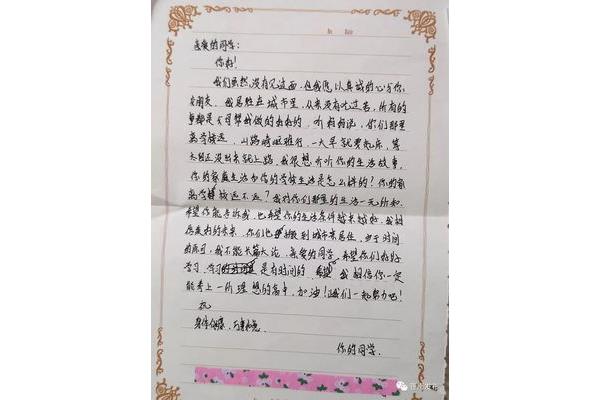 亲爱的同学:
你好!
我们虽然没有见过面,但我愿以真诚的心与你
交朋友。我居住在城市里,从来没有吃过苦,所有的
事都是父母帮我做的,听妈妈说,你们那里
离学校远,山路崎岖难行,一大早就要起床,等
太阳还没出来就上路,我很想听听你的生活故事,
你的家庭生活和你的学校生活是怎么样的?你的家
离学校远不远?我对你们那里的生活一无所知,
希望你能告诉我,也希望你的生活条件越来越好,我相
信 的未来,你们也 搬到城市来居住,由于时间
有限,我不能长篇大论,亲爱的同学,希望你们好好
学习,学习 是有时间的,我相信你一定
能考上一所理想的高中,加油!我们一起努力吧!
祝
身体健康,万事
你的同学
发布